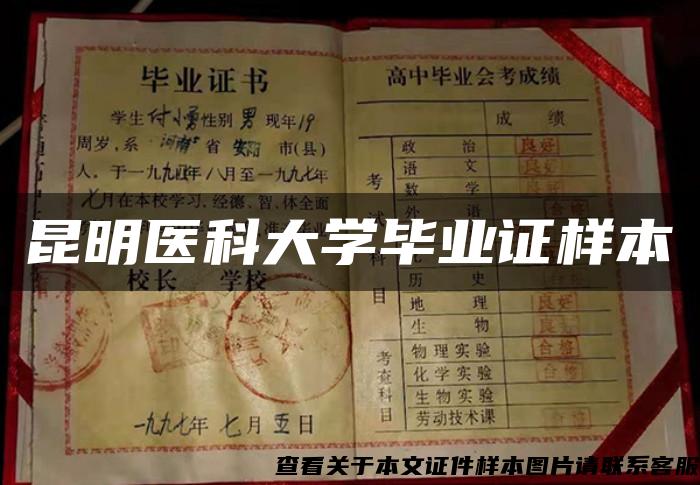 毕业证书
学生付小勇性别男现年19
周岁,系河南省安阳市(县)
人,于一九九四年八月至一九九七年
七月在本校学习,经德、智、体全面
昆明医科大学毕业证样本
校长 学校
一九九七年七月五日
高中毕业会考成绩
成绩
考试科目
政治 良好
语文 良好
数学
外语 合格
历史
地理 良好
生物 良好
考查科目
物理实验 合格
化学实验 合格
生物实验
劳动技术课 合格
查看关于本文证件样本图片请联系客服